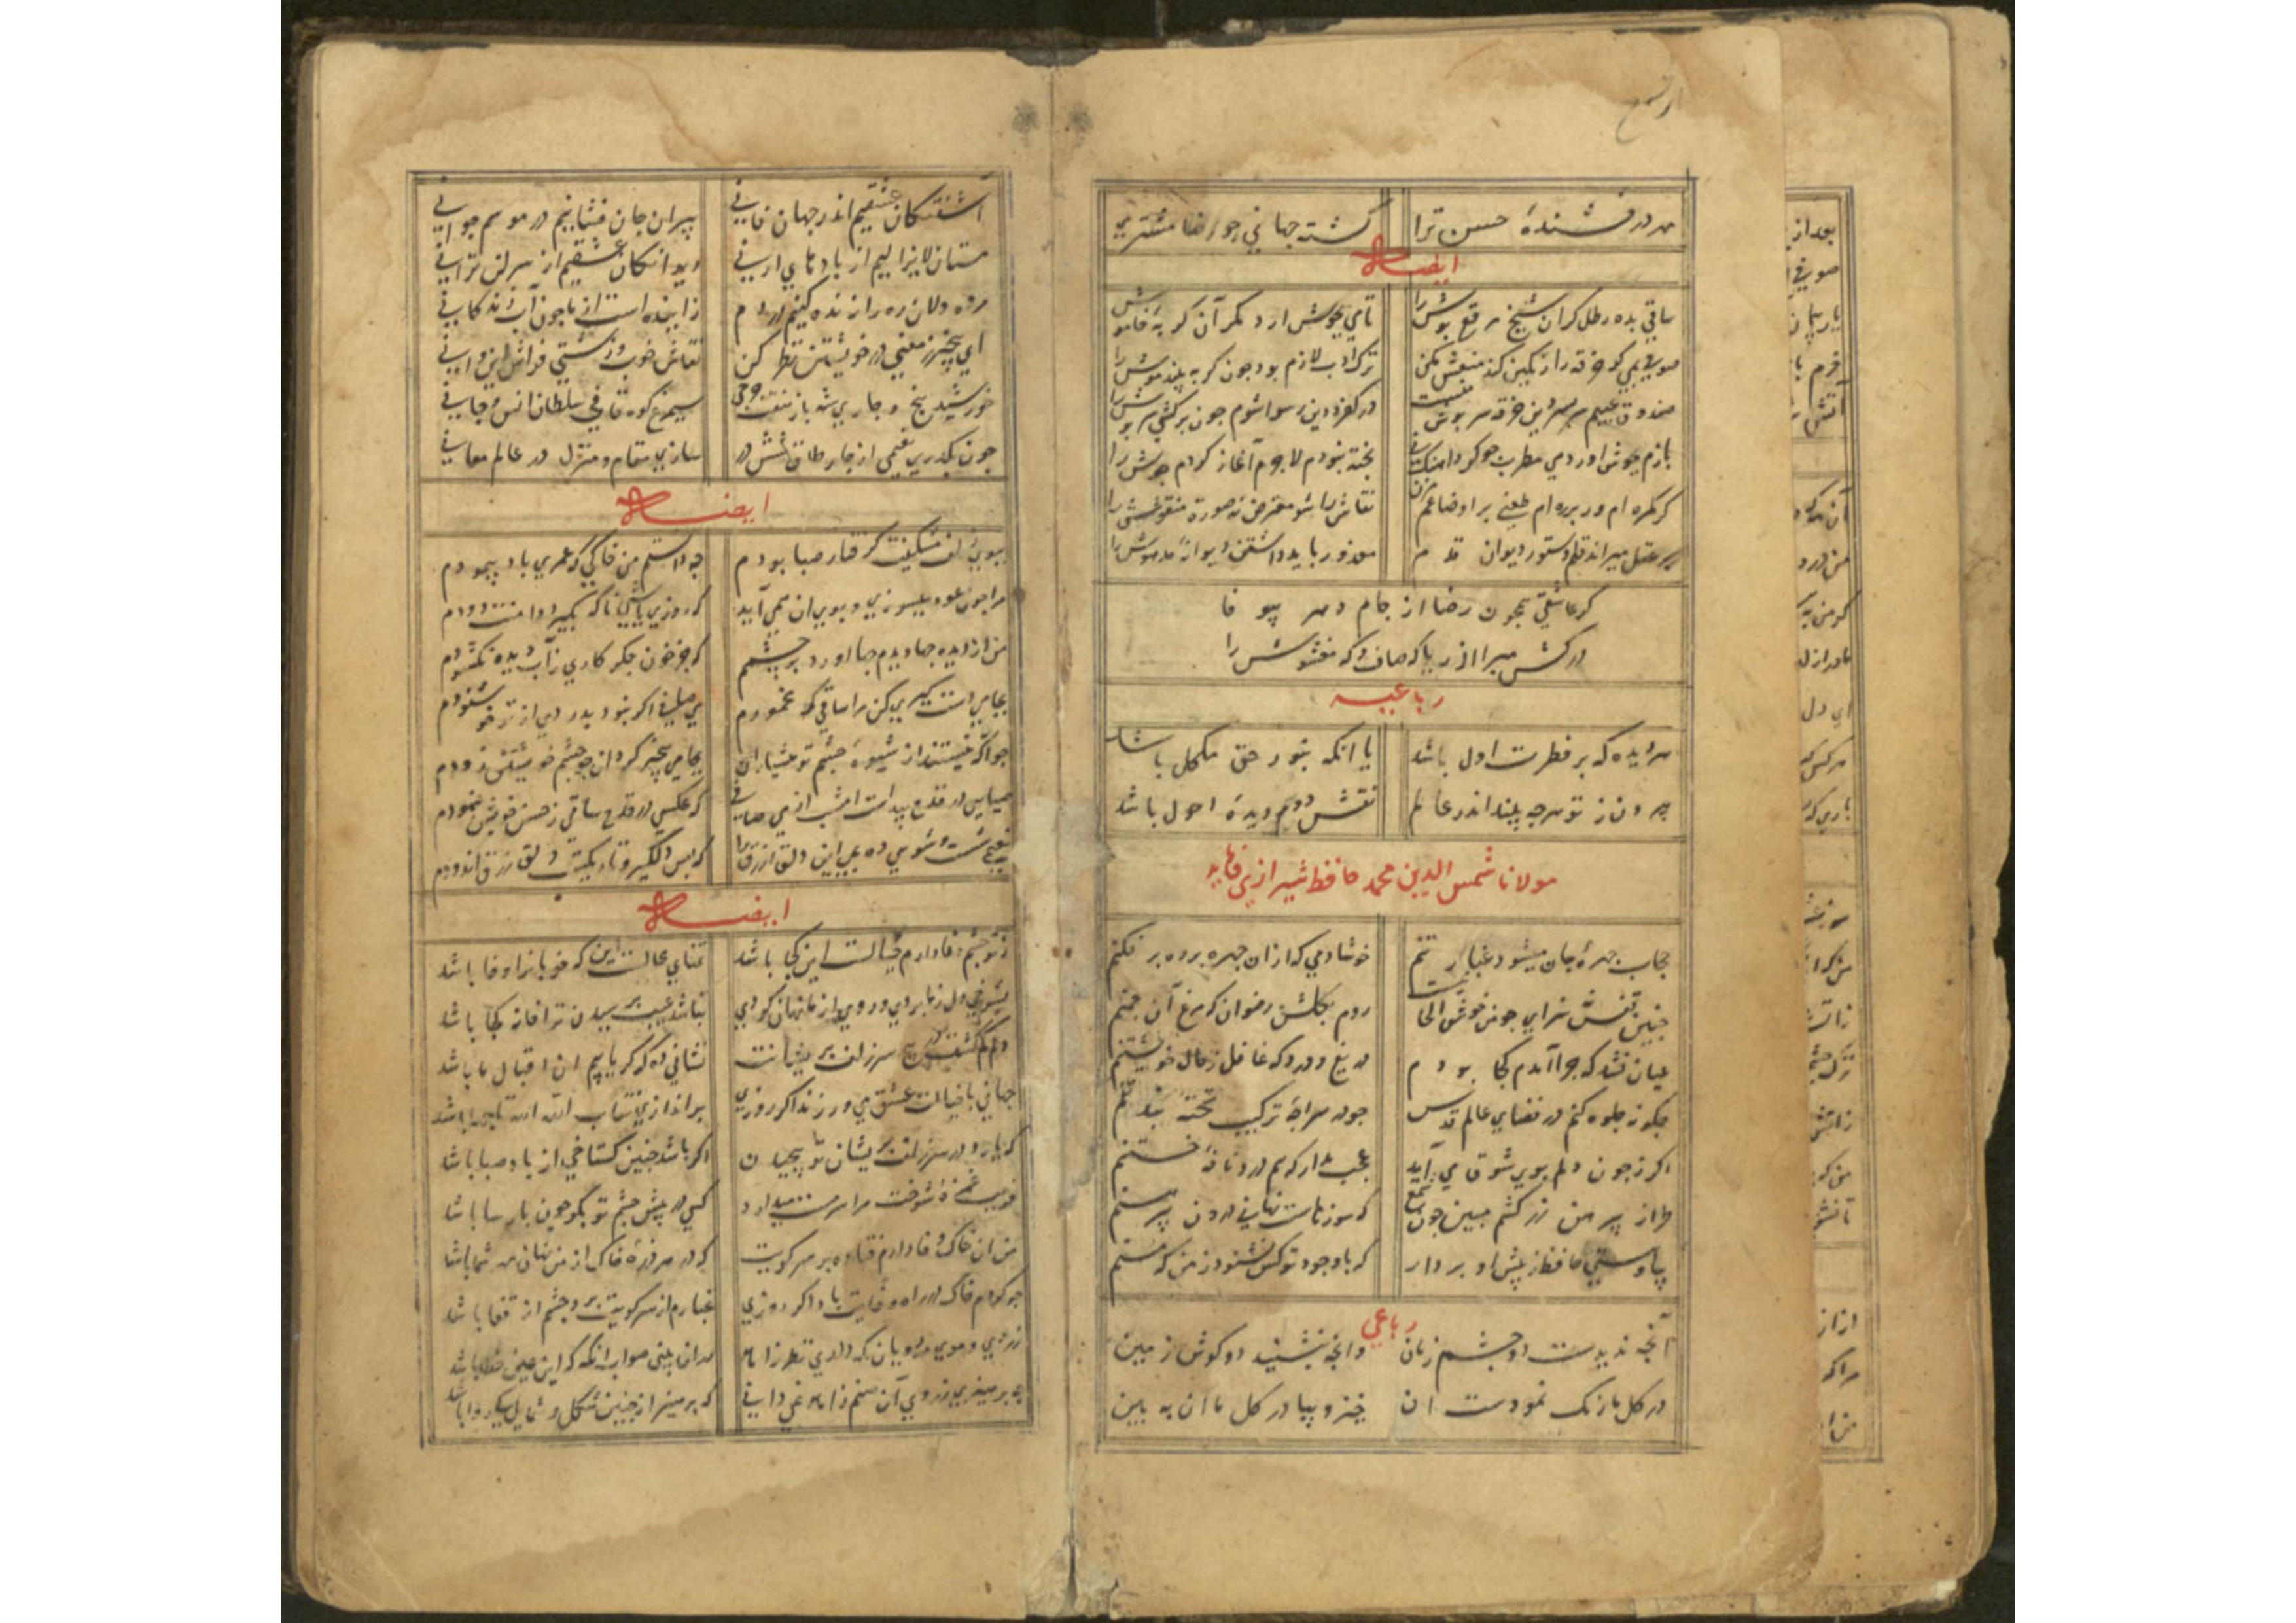 مه درفشندهٔ حسن ترا کشته جهانی جو رضا مشتری
ایضاً
ساقی بده رطل کران شیخ مرقع پوش را تامی بجوش ارد مکر آن کربهٔ خاموش را
صوفی بمی کو خرقه را رنکین کند منعش مکن ترک ادب لازم بود جون کربه بیند موش را
صندوق عیبم سر بسر این خرقه سر پوش منست در کفر و دین رسوا شوم جون برکشی سرپوش را
بازم بجوش اورد می مطرب جو کرد اهنک نی پخته نبودم لاجرم آغاز کردم جوش را
کر کمره ام ور بره ام طعنی بر اوضاعم مزن نقاش را شو معترض نه صورة منقوش را
بر عقل میراند قلم دستور دیوان قدم معذور باید داشتن دیوانهٔ مدهوش را
کر عاشقی همجون رضا از جام و مهر پیوفا
درکش مبرا از ریا که صاف و که مغشوش را
رباعیه
هر دیده که بر فطرت اول باشد یا انکه بنور حق مکمل باشد
بیرون ز تو هر جه بیند اندر عالم نقش دوم دیدهٔ احول باشد
مولانا شمس الدین محمد حافظ شیرازی فرماید
حجاب جهرهٔ جان میشود غبار تنم خوشا دمی که ازان جهره برده بر فکنم
جنین قفس نه سزای جو من خوش الحانیست روم بکلشن رضوان که مرغ آن جمنم
عیان نشد که جرا آمدم کجا بودم دریغ و درد که غافل ز حال خویشتنم
جکونه جلوه کنم در فضای عالم قدس جو در سراجهٔ ترکیب تخته بند تنم
اکر ز جون دلم بوی شوق می آید عجب مدار که هم درد نافهٔ ختنم
طراز پیرهن زر کشم مبین جون شمع که سوزهاست نهانی درون پیرهنم
بیا و هستی حافظ ز پیش او بردار که با وجود تو کس نشنود ز من که منم
رباعی
آنجه ندیدست دو جشم زمان وانجه بنشنید دو کوش زمین
در کل ما رنک نمودست ان خیز و بیا در کل ما ان به بین
آشفتکان عشقیم اندر جهان فانی پیران جان فشانیم در موسم جوانی
مستان لایزالیم از بادهای ارنی دیوانکان عشقیم از سر لن ترانی
مرده دلان ره را زنده کنیم در دم زاینده است از ما جون آب زندکانی
ای بیخبر ز معنی در خویشتن نظر کن نقاش خوب و زشتی فراش این و انی
خورشید پنج و جاری شهباز هفت و جی سیمرغ کوه قافی سلطان انس و جانی
جون بکذری نعیمی از جار طاق شش در سازی مقام و منزل در عالم معانی
ایضاً
ببوی زلف مشکینت کرفتار صبا بودم جه دانستم من خاکی که عمری باد پیمودم
مرا جون عود میسوزی و بوی ان نمی آید که روزی باشی تا که بکیرد دامنت دودم
من از دیده جها دیدم جها اورد بر جشمم که جز خون جکر کاری ز آب دیده نکشودم
بجامی دست کیری کن مرا ساقی که مخمورم می صافی اکر نبود بدردی از تو خوشنودم
جو آکه نیستند از شیوهٔ جشم تو هشیاران بجامی بیخبر کردان جو جشم خویشتن زودم
ضیایی در قدح پیداست امشب از می صافی که عکسی در قدح ساقی ز حسن خویش بنمودم
نعیمی شست و شویی ده بمی این دلق ازرق را که بس دلکیر و تاریکست دلق زرق اندودم
ایضاً
ز تو جشم وفا دارم خیالست این کجا باشد تمنای محالست این که خوبانرا وفا باشد
بشوخی دل ز ما بردی و روی از ما نهان کردی نباشد عیب پرسیدن ترا خانه کجا باشد
دلم کم کشت در پیچ سر زلف پریشانت نشانی ده که کر یابیم ان اقبال ما باشد
جهانی با خیالت عشق می ورزند اکر روزی براندازی نقاب الله الله تا جها باشد
که یارد در سر زلف پریشان تو پیجیدن اکر باشد جنین کستاخی از باد صبا باشد
فریب غمزهٔ شوخت مرا سرمست میدارد کسی در پیش جشم تو بکو جون پارسا باشد
من ان خاک وفادارم فتاده بر سر کویت که در هر ذرهٔ خاک از من نهان مهر شما باشد
جو کردم خاک در راه وفایت باد اکر روزی غبارم از سر کویت برد جشم از قفا باشد